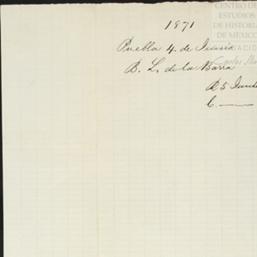 CENTRO DE
ESTUDIOS
DE HISTORIA
DE MÉXICO
1871
Puebla 4. de Junio
B. L. de la Barra
R 5 Junio
C.